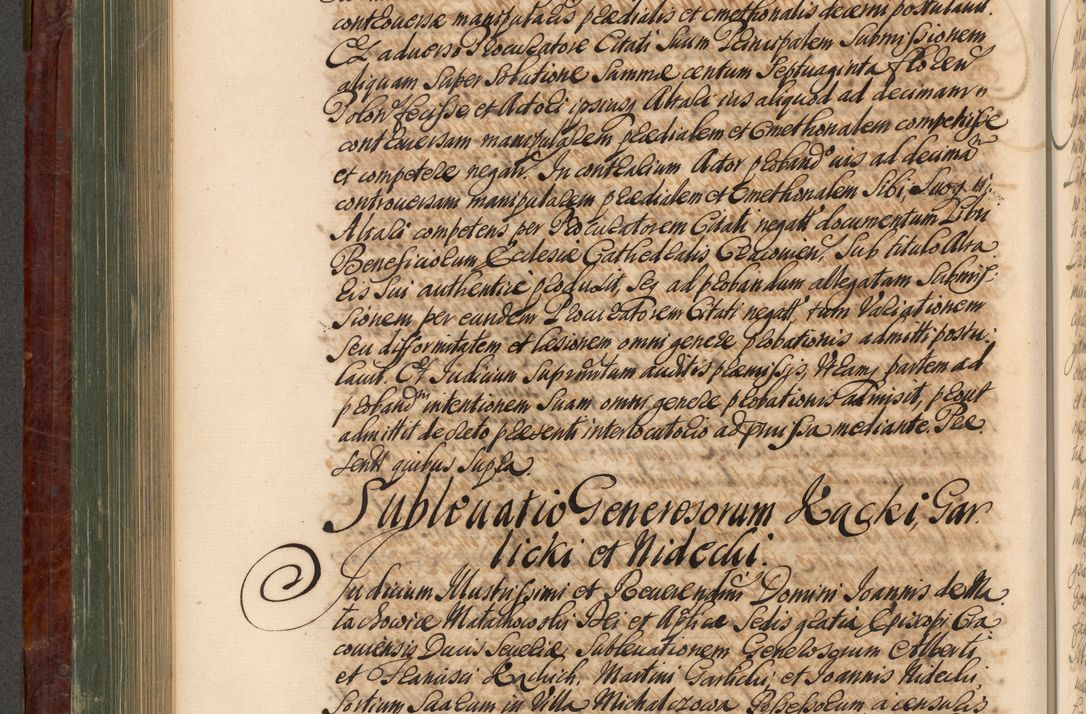 controversæ manipularis prædialis et cmethonalis decerni postulavit.
Ex adverso Procuratore Citati Suum Principalem Submissionem
aliquam Super Solutione Summæ centum Septuaginta floren
Polon fecisse, et Actori ipsiusq Altari ius aliquod ad decimam
controversam manipularem prædialem et Cmethonalem competiisse
et competere negan. In contrarium Actor proband ius ad decimam
controversam manipularem prædialem et Cmethonalem Sibi, Suoq
Altari competens per Procuratorem Citati negatt documentum Libri
Beneficiorum Ecclesiæ Cathedralis Cracovien, Sub titulo Altaris
Sui authentice produxit, Seq ad probandum allegatam Submis
Sionem per eundem Procuratorem Citati negatt, tum
Seu difformitatem et læsionem omni genere probationis admitti postu
lavit. Et Judicium Supremum auditis præmissis, Utramq partem ad
proband intentionem Suam omni genere probationis admisit, prout
admittit decreto præsenti interlocutorio ad præmissa mediante. Præ
sentt quibus Supra.
Sublevatio Generosorum Kącki, Gar
licki et Nidecki.
Judicium Illustrissimi et Reverendmi Domini Joannis de Ma
łachowice Małachowski Dei et Aplicæ Sedis gratia Episcopi Cra
coviensis Ducis Severiæ, Sublevationem Generosorum Alberti
et Stanislai Martini Garlicki, et Joannis Nidecki
Sortium Suarum in Villa Michalczowa Possessorum a censuris